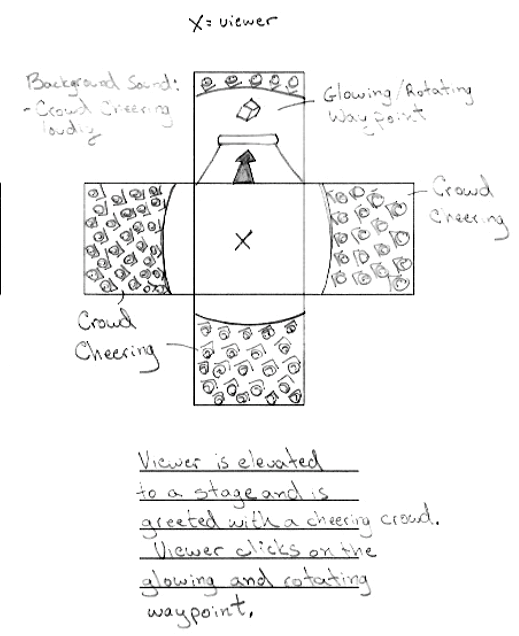 X = viewer
Background Sound:
- Crowd Cheering
loudly
Glowing/Rotating
Waypoint
X
Crowd
Cheering
Crowd
Cheering
Viewer is elevated
to a stage and is
greeted with a cheering crowd.
Viewer clicks on the
glowing and rotating
waypoint.